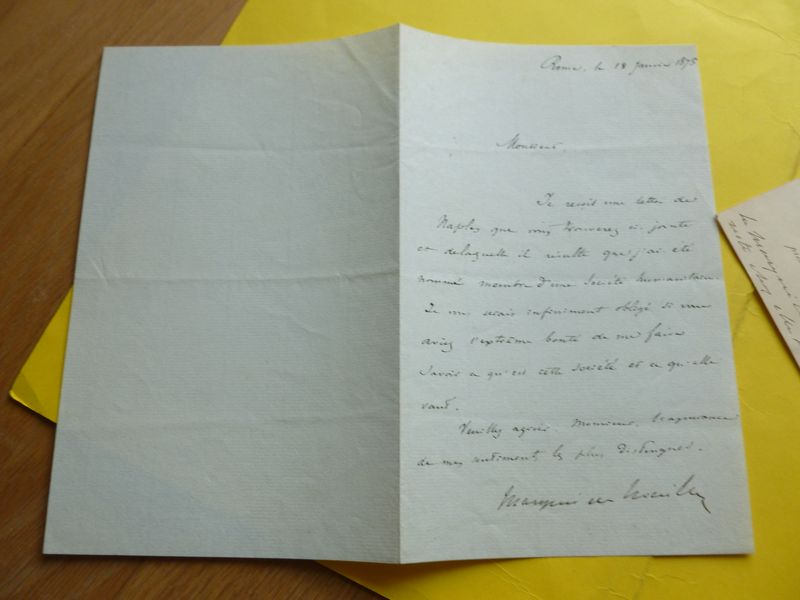 Rome, le 18 Janvier 1875
Monsieur,
Je reçois une lettre de
Naples que vous trouverez ci-jointe
et de laquelle il résulte que j'ai été
nommé membre d'une Société humanitaire.
Je vous serais infiniment obligé si vous
aviez l'extrême bonté de me faire
savoir ce qu'est cette société et ce qu'elle
vaut.
Veuillez agréer, Monsieur, l'assurance
de mes sentiments les plus distingués.
Marquis de Noailles